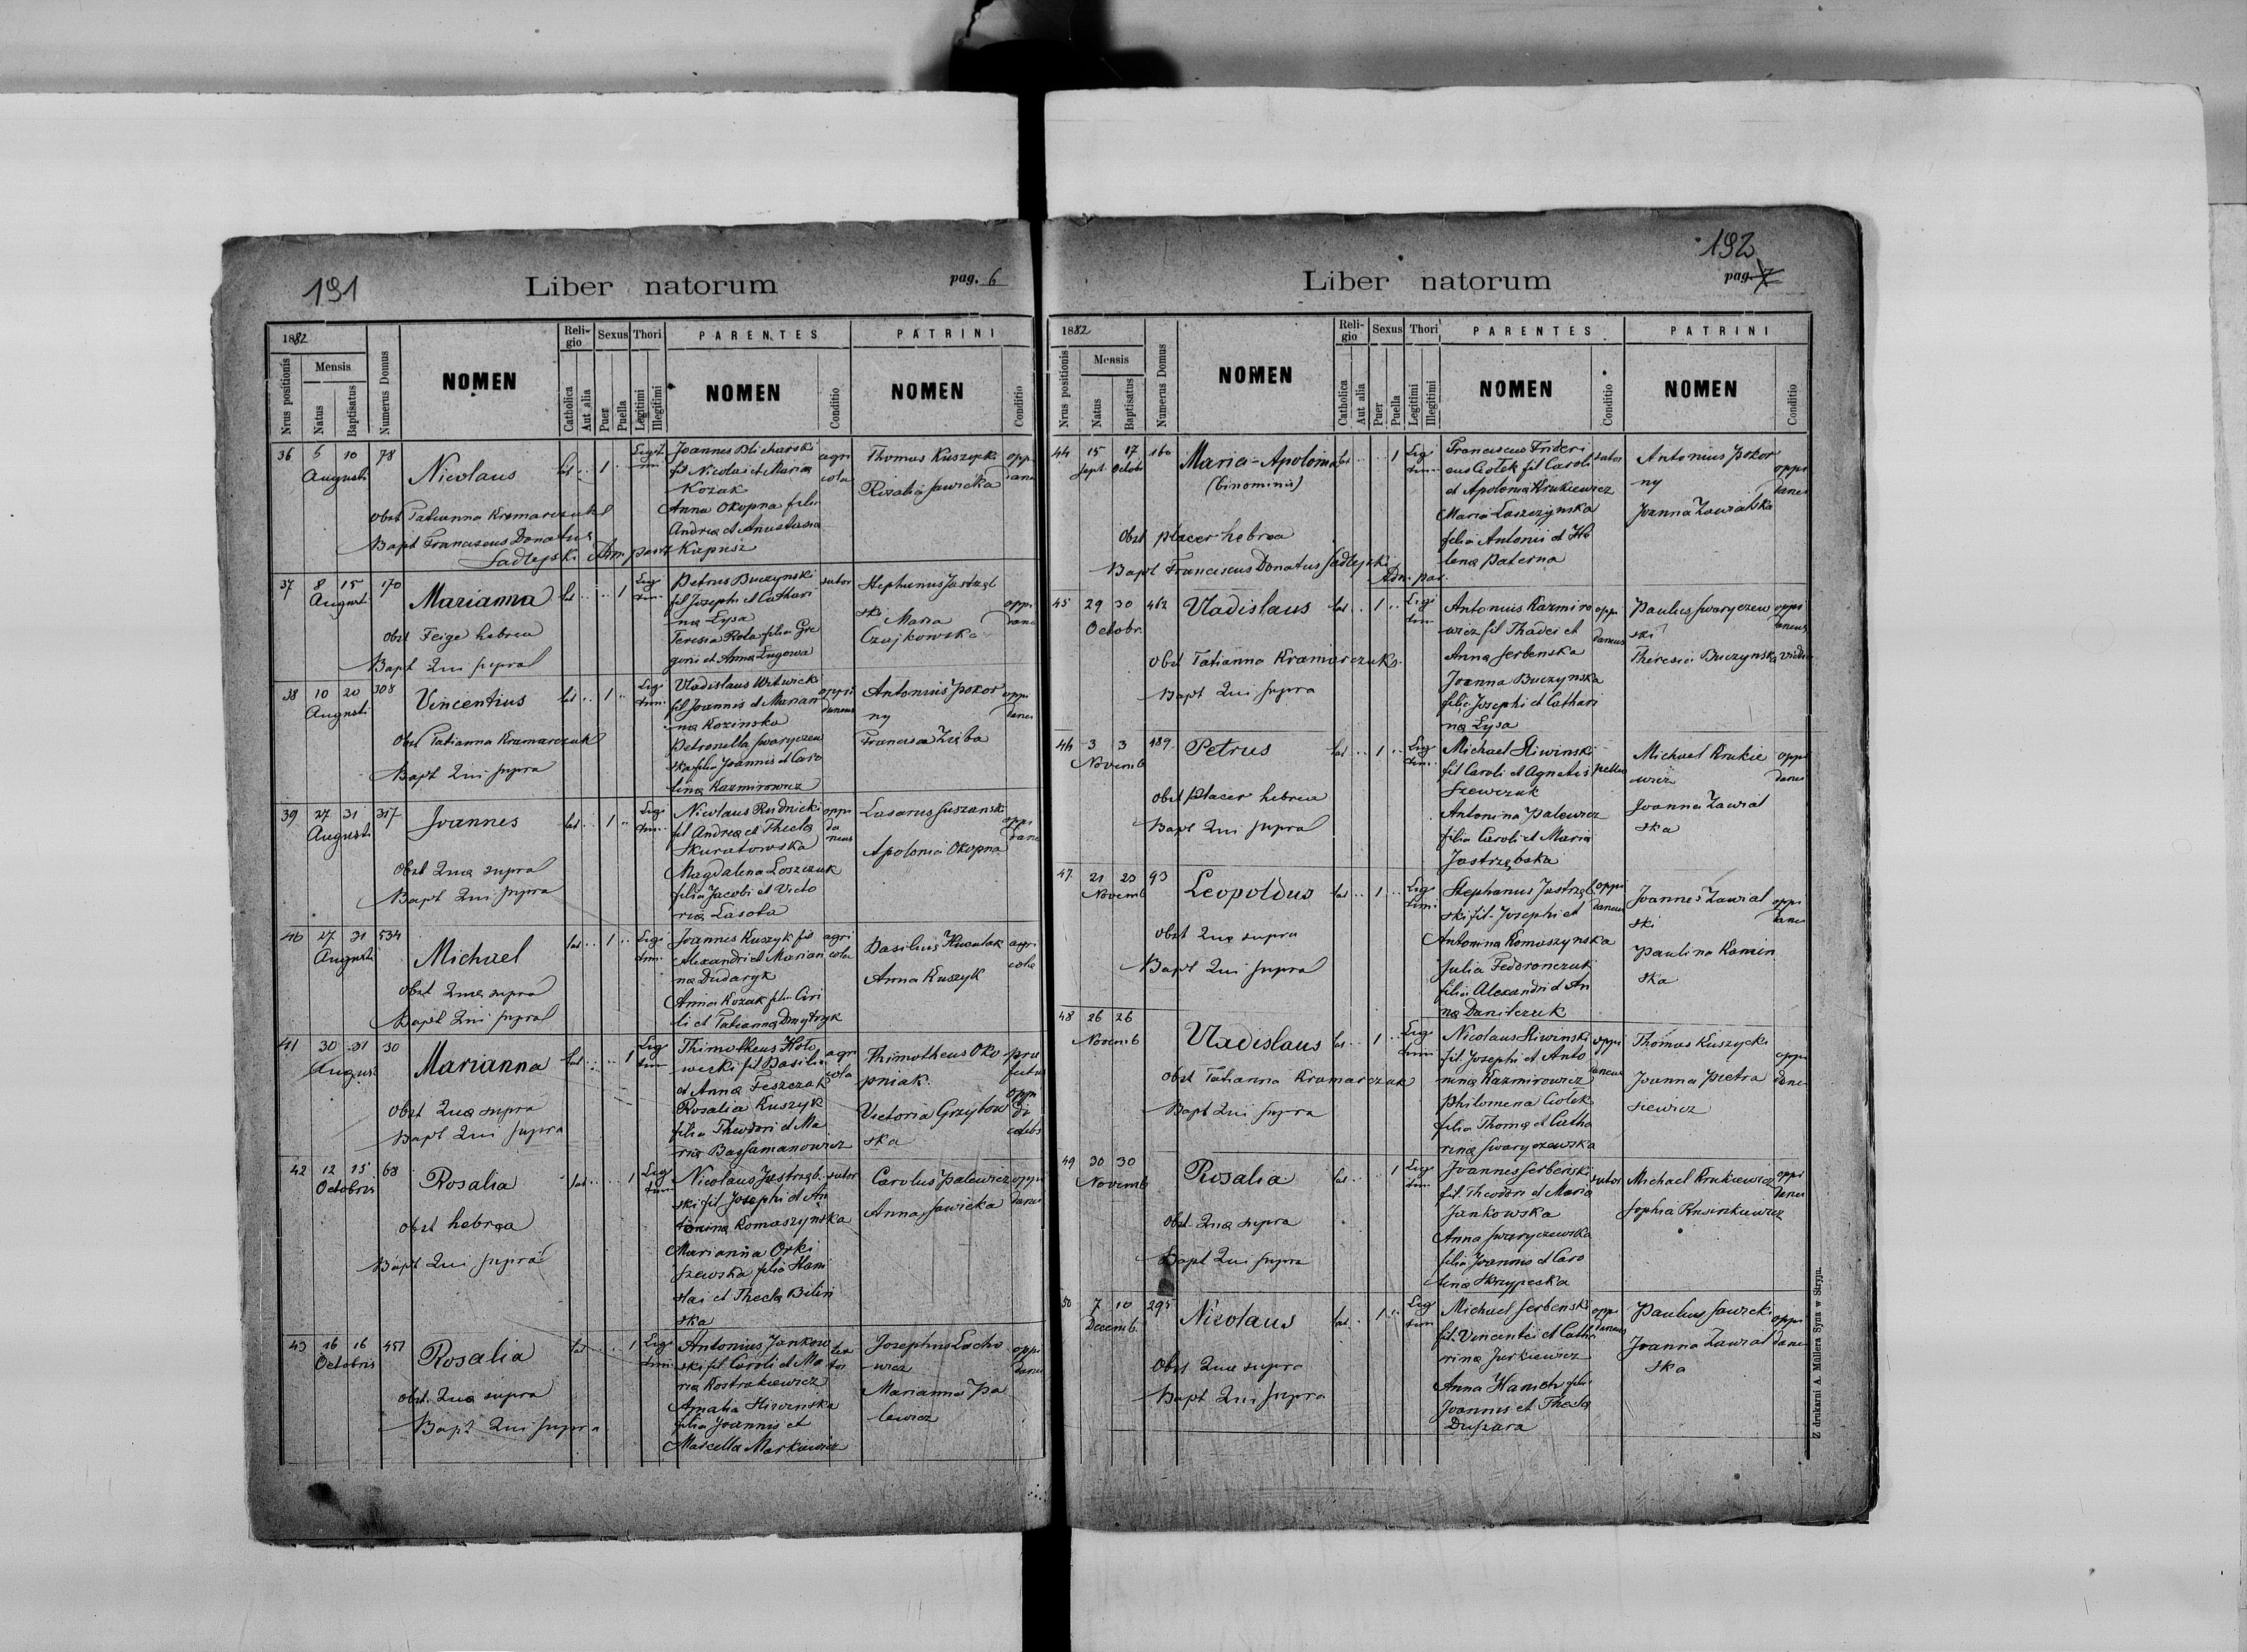 191
Liber natorum
pag. 6
1882
Nrus positionis
Mensis
Natus
Baptisatus
Numerus Domus
NOMEN
Religio
Catholica
Aut alia
Sexus
Puer
Puella
Thori
Legitimi
Illegitimi
PARENTES
NOMEN
Conditio
PATRINI
NOMEN
Conditio
36 5 10 78
Augusti
Nicolaus
Obst Tatianna Kramarczuk
Bapt Franciscus Donatus
Sadlejski Adm. par
Joannes Blicharski
fil Nicolai et Maria
Kozak
Anna Okopna filia
Andrea et Anastasia
Kapusz
agri
cola
Thomas Kuszycki
Rosalia Sawicka
37 8 15 170
August
Marianna
Obst Feige hebrea
Bapt Qui supra
Petrus Buczynski
fil Josephi et Cathari
na Lysa
Teresia Rola filia Gre
gorii et Anna Lugowa
sutor
Stephanus Jastrzęb
ski
Maria
Czajkowska
38 10 20 308
Augusti
Vincentius
Obst Tatianna Kramarczuk
Bapt Qui supra
Vladislaus Witwicki
fil Joannis et Marian
na Kozinska
Petronella Swaryczew
ska filia Joannis et Caro
lina Kazmirowicz
oppi
daneus
Antonius Pokor
ny
Francisca Zięba
39 27 31 317
Augusti
Joannes
Obst Qua supra
Bapt Qui supra
Nicolaus Rudnicki
fil Andrea et Thecla
Skuratowska
Magdalena Loszczuk
filia Jacobi et Victo
ria Lasota
oppi
da
neus
Lasarus Suszanski
Apolonia Okopna
40 27 31 534
Augusti
Michael
Obst Qua supra
Bapt Qui supra
Joannis Kuszyk fil
Alexandri et Marian
na Dudaryk
Anna Kozak filia Ciri
li et Tatianna Dmytryk
agri
cola
Anna Kuszyk
agri
cola
41 30 31 30
August
Marianna
Obst Qua supra
Bapt Qui supra
Thimotheus Hoło
wecki fil Basilii
et Anna Feszczak
Rosalia Kuszyk
filia Theodori et Ma
ria Bassamanowicz
agri
cola
Thimotheus Oko
pniak
Victoria Grzybow
ska
42 12 15 68
Octobris
Rosalia
Obst hebrea
Bapt Qui supra
Nicolaus Jastrzęb
ski fil Josephi et An
tonina Komaszyńska
Marianna Orki
szewska filia Stani
slai et Thecla Bilin
ska
sutor
Carolus Palewicz
Anna Sawicka
oppi
daneus
43 16 16 451
Octobris
Rosalia
Obst. Qua supra
Bapt Qui supra
Antonius Jankow
ski fil. Caroli et Ma
ria Kostrakiewicz
Amalia Sliwinska
filia Joannis et
Marcella Markiewicz
Josephus Lacho
wicz
Marianna Pa
lewicz
192
Liber natorum
pag. 7
1882
Nrus positionis
Mensis
Natus
Baptisatus
Numerus Domus
NOMEN
Religio
Catholica
Aut alia
Sexus
Puer
Puella
Thori
Legitimi
Illegitimi
PARENTES
NOMEN
Conditio
PATRINI
NOMEN
Conditio
44 15 17 160
Sept Octobr
Maria-Apolonia
(binominis)
Obst Placer hebrea
Bapt Franciscus Donatus Sadlejski
Adm. par.
Franciscus Frideri
cus Ciołek fil Caroli
et Apolonia Krukiewicz
Maria Laszczynska
filia Antonii et He
lena Paterna
sutor
Antonius Pokor
ny
Joanna Zawialska
45 29 30 462
Octobr.
Vladislaus
Obst Tatianna Kramarczuk
Bapt Qui supra
Antonius Kazmiro
wicz fil Thadei et
Anna Serbenska
Joanna Buczynska
filia Josephi et Cathari
na Lysa
oppi
daneus
Paulus Swaryczew
ski
Theresia Buczynska vidua
oppi
daneus
46 3 3 489
Novemb
Petrus
Obst Placer hebrea
Bapt Qui supra
Michael Sliwinski
fil Caroli et Agnetis
Szewczuk
Antonina Palewicz
filia Caroli et Maria
Jastrzębska
Michael Krukie
wicz
Joanna Zawial
ska
47 21 23 93
Novemb
Leopoldus
Obst Qua supra
Bapt Qui supra
Stephanus Jastrzęb
ski fil. Josephi et
Antonina Komaszynska
Julia Fedoronczuk
filia Alexandri et An
na Danilczuk
oppi
daneus
Joannes Zawial
ski
Paulina Kamin
ska
48 26 26
Novemb
Vladislaus
Obst Tatianna Kramarczuk
Bapt Qui supra
Nicolaus Sliwinski
fil. Josephi et Anto
nina Kazmirowicz
Philomena Ciołek
filia Thoma et Catha
rina Swaryczewska
oppi
daneus
Thomas Kuszycki
Joanna Pietra
siewicz
49 30 30
Novemb
Rosalia
Obst. Qua supra
Bapt Qui supra
Joannes Serbeński
fil. Theodori et Maria
Jankowska
Anna Swaryczewska
filia Joannis et Caro
lina Skrzypeska
sutor
Michael Krukiewicz
oppi
daneus
50 7 10 295
Decemb.
Nicolaus
Obst Qua supra
Bapt Qui supra
Michael Serbenski
fil. Vincentii et Catha
rina Jurkiewicz
Anna Hanich filia
Joannis et Thecla
Duszara
oppi
daneus
Paulus Sawicki
Joanna Zawial
ska
Z drukarni A. Müllera Syna w Stryju.